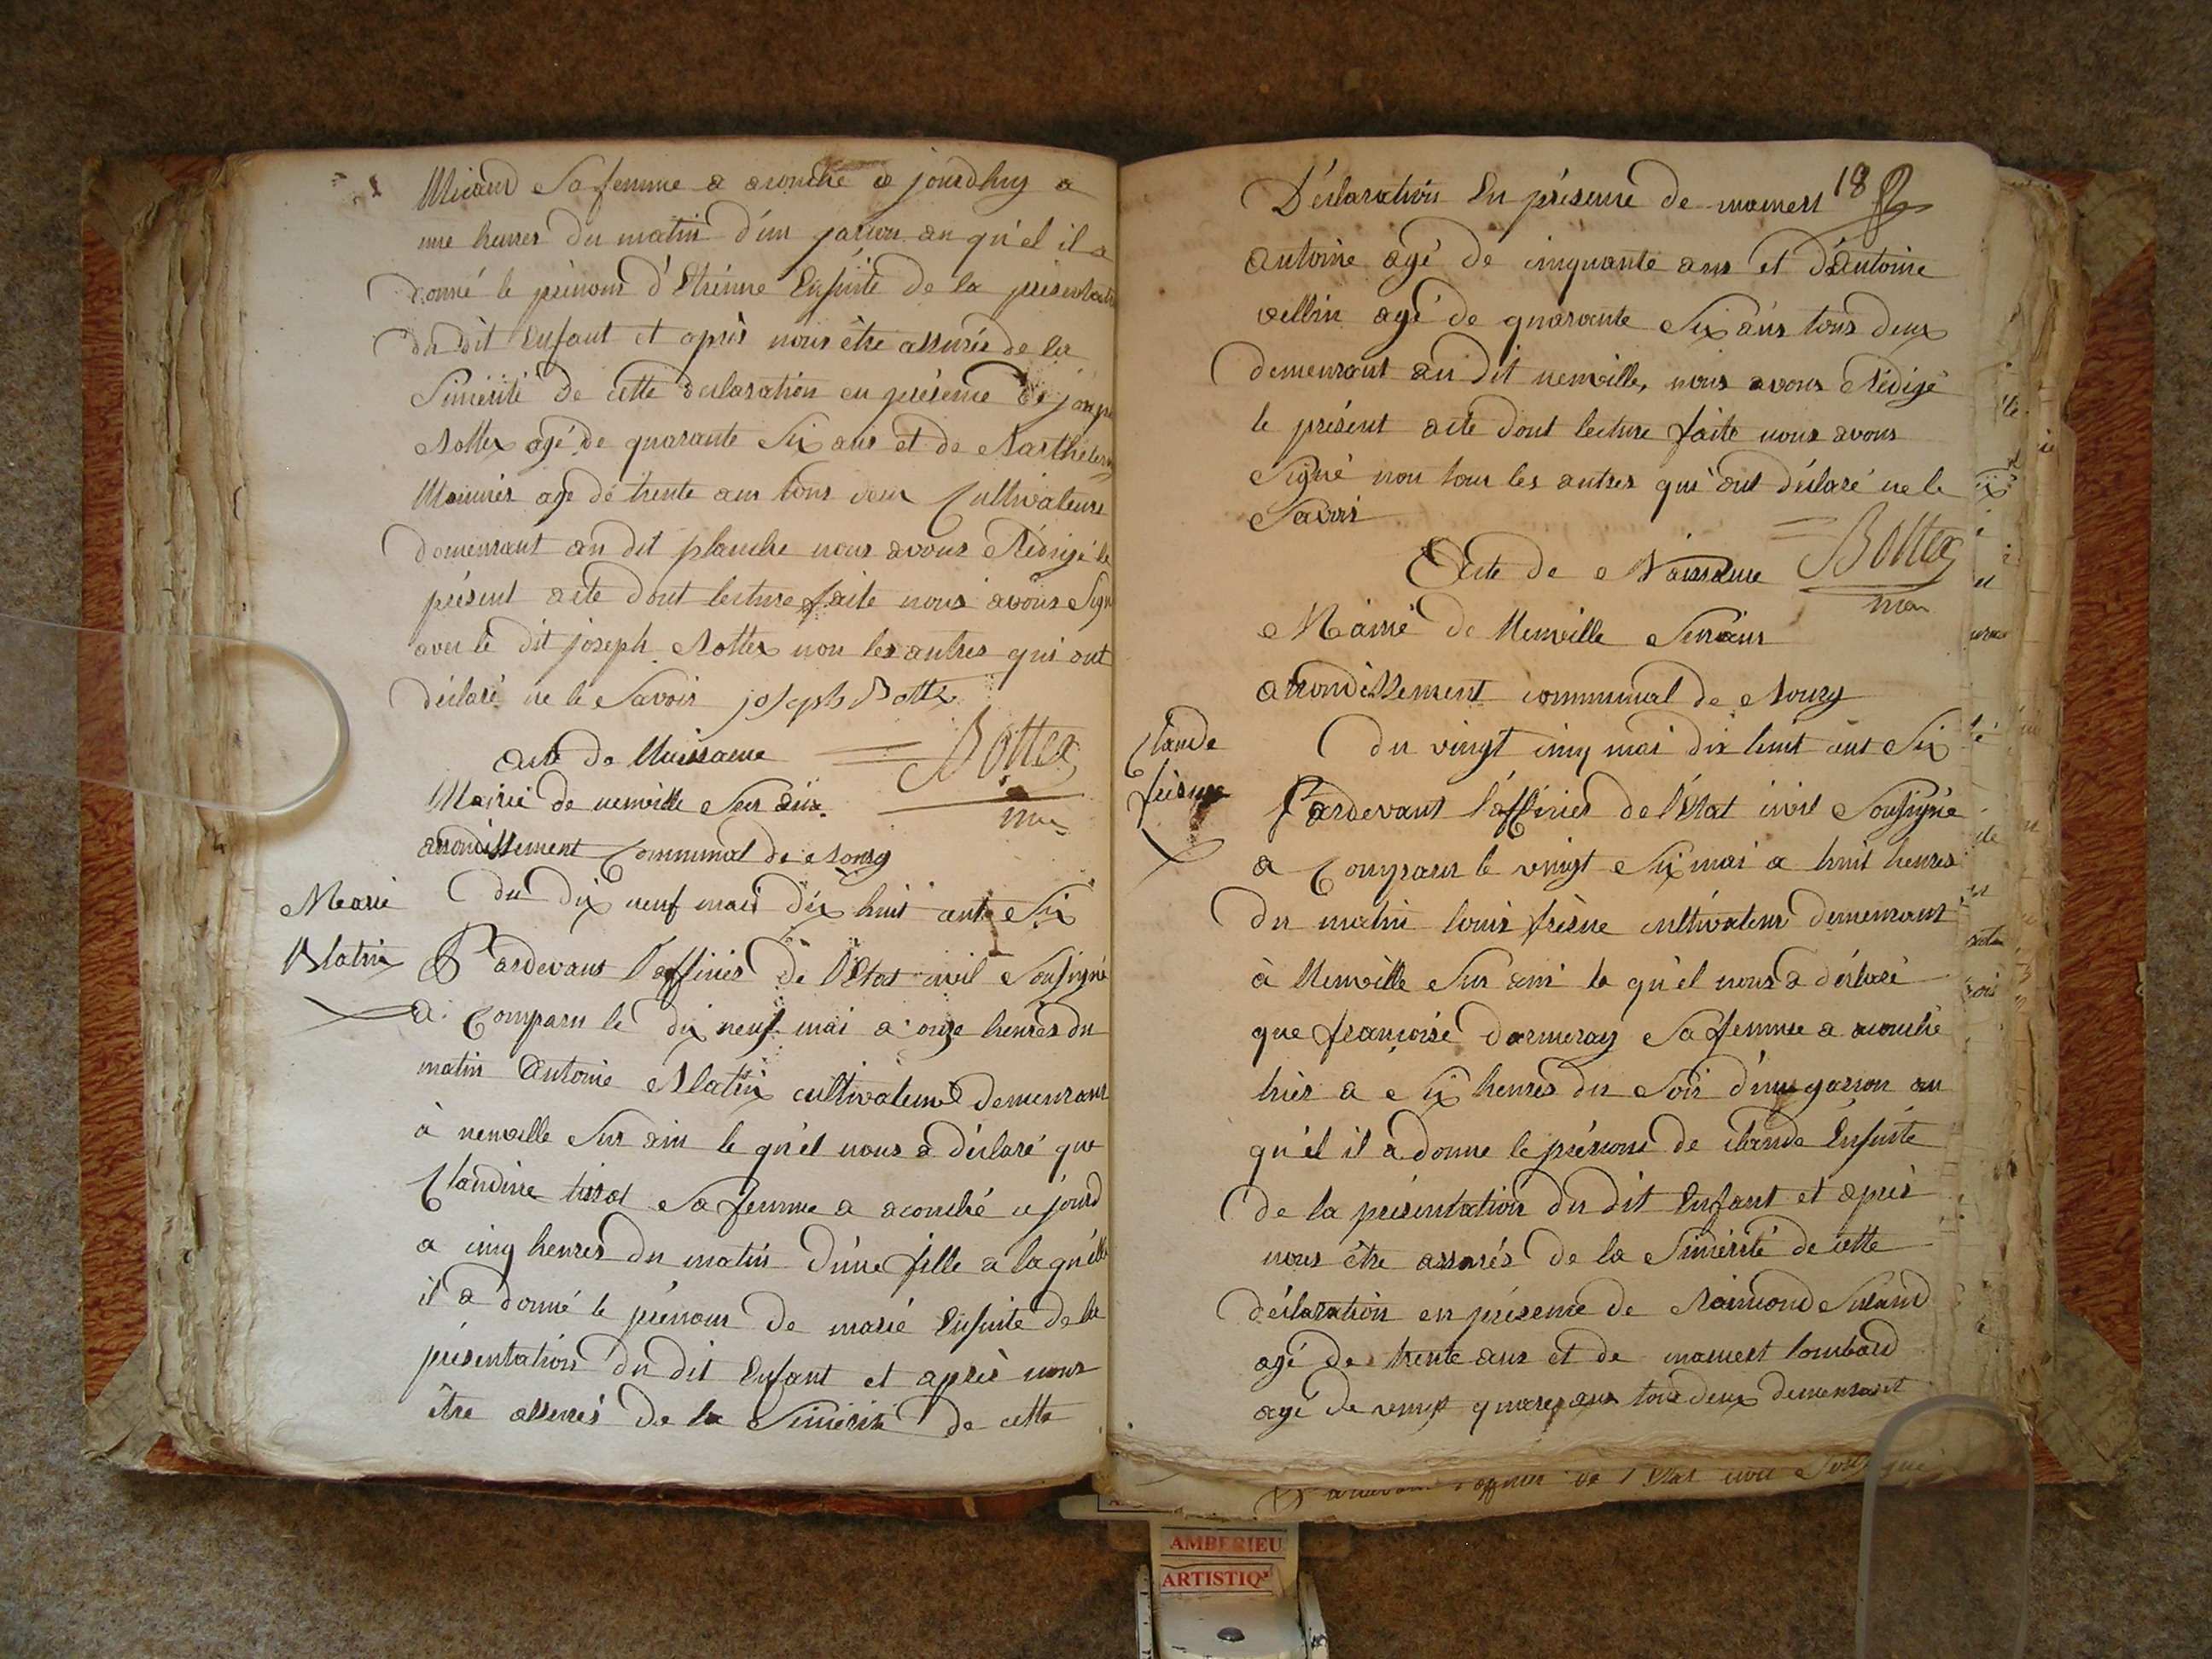 Micand Sa femme a acouché ce jourdhuy a
une heures du matin d'un garcon au qu'el il a
donné le prénom d'Etienne Ensuite de la présentati
du dit Enfant et après nous être assurés de la
Sincérité de cette déclaration en présence de joseph
Bottex agé de quarante Six ans et de Barthelemy
Monnier agé de trente ans tous deux Cultivateurs
demeurant au dit planche nous avons Rédigé le
présent acte dont lecture faite nous avons Sign
avec le dit joseph Bottex non les autres qui ont
déclaré ne le Savoir joseph Bottex
Acte de Naissance Bottex
Mairie de neuville Sur ain maire
arrondissement Communal de Bourg
Marie
Blatin
du dix neuf mai dix huit cent Six
Pardevant l'officier de l'Etat civil Sousigné
a Comparu le dix neuf mai a onze heures du
matin Antoine Blatin cultivateur demeurant
à neuville Sur ain le qu'el nous a déclaré que
Claudine tissot Sa femme a acouché ce jourd
a cinq heures du matin d'une fille a la qu'elle
il a donné le prénom de marie Ensuite de la
présentation du dit Enfant et après nous
être assurés de la Sincérité de cette
18
Déclaration En présence de mamert
antoine agé de cinquante ans et d'antoine
vellin agé de quarante Six ans tous deux
demeurant au dit neuville, nous avons Rédigé
le présent acte dont lecture faite nous avons
Signé non tous les autres qui ont déclaré ne le
Savoir
Acte de Naissance Bottex
maire
Mairie de Neuville Sur ain
arrondissement communal de Bourg
Claude
frèsne
du vingt cinq mai dix huit cent Six
Pardevant l'officier de l'Etat civil Sousigné
a Comparu le vingt Six mai a huit heures
du matin louis frèsne cultivateur demeurant
à Neuville Sur ain le qu'el nous a déclaré
que françoise darmeray Sa femme a acouché
hier a Six heures du Soir d'un garson au
qu'el il a donné le prénom de claude Ensuite
de la présentation du dit Enfant et après
nous être assurés de la Sincérité de cette
déclaration en présence de Raimond
agé de trente ans et de mamert lombard
agé de vingt quatre ans tous deux demeurant
Pardevant l'officier de l'Etat civil Sousigné
AMBERIEU
ARTISTIQ